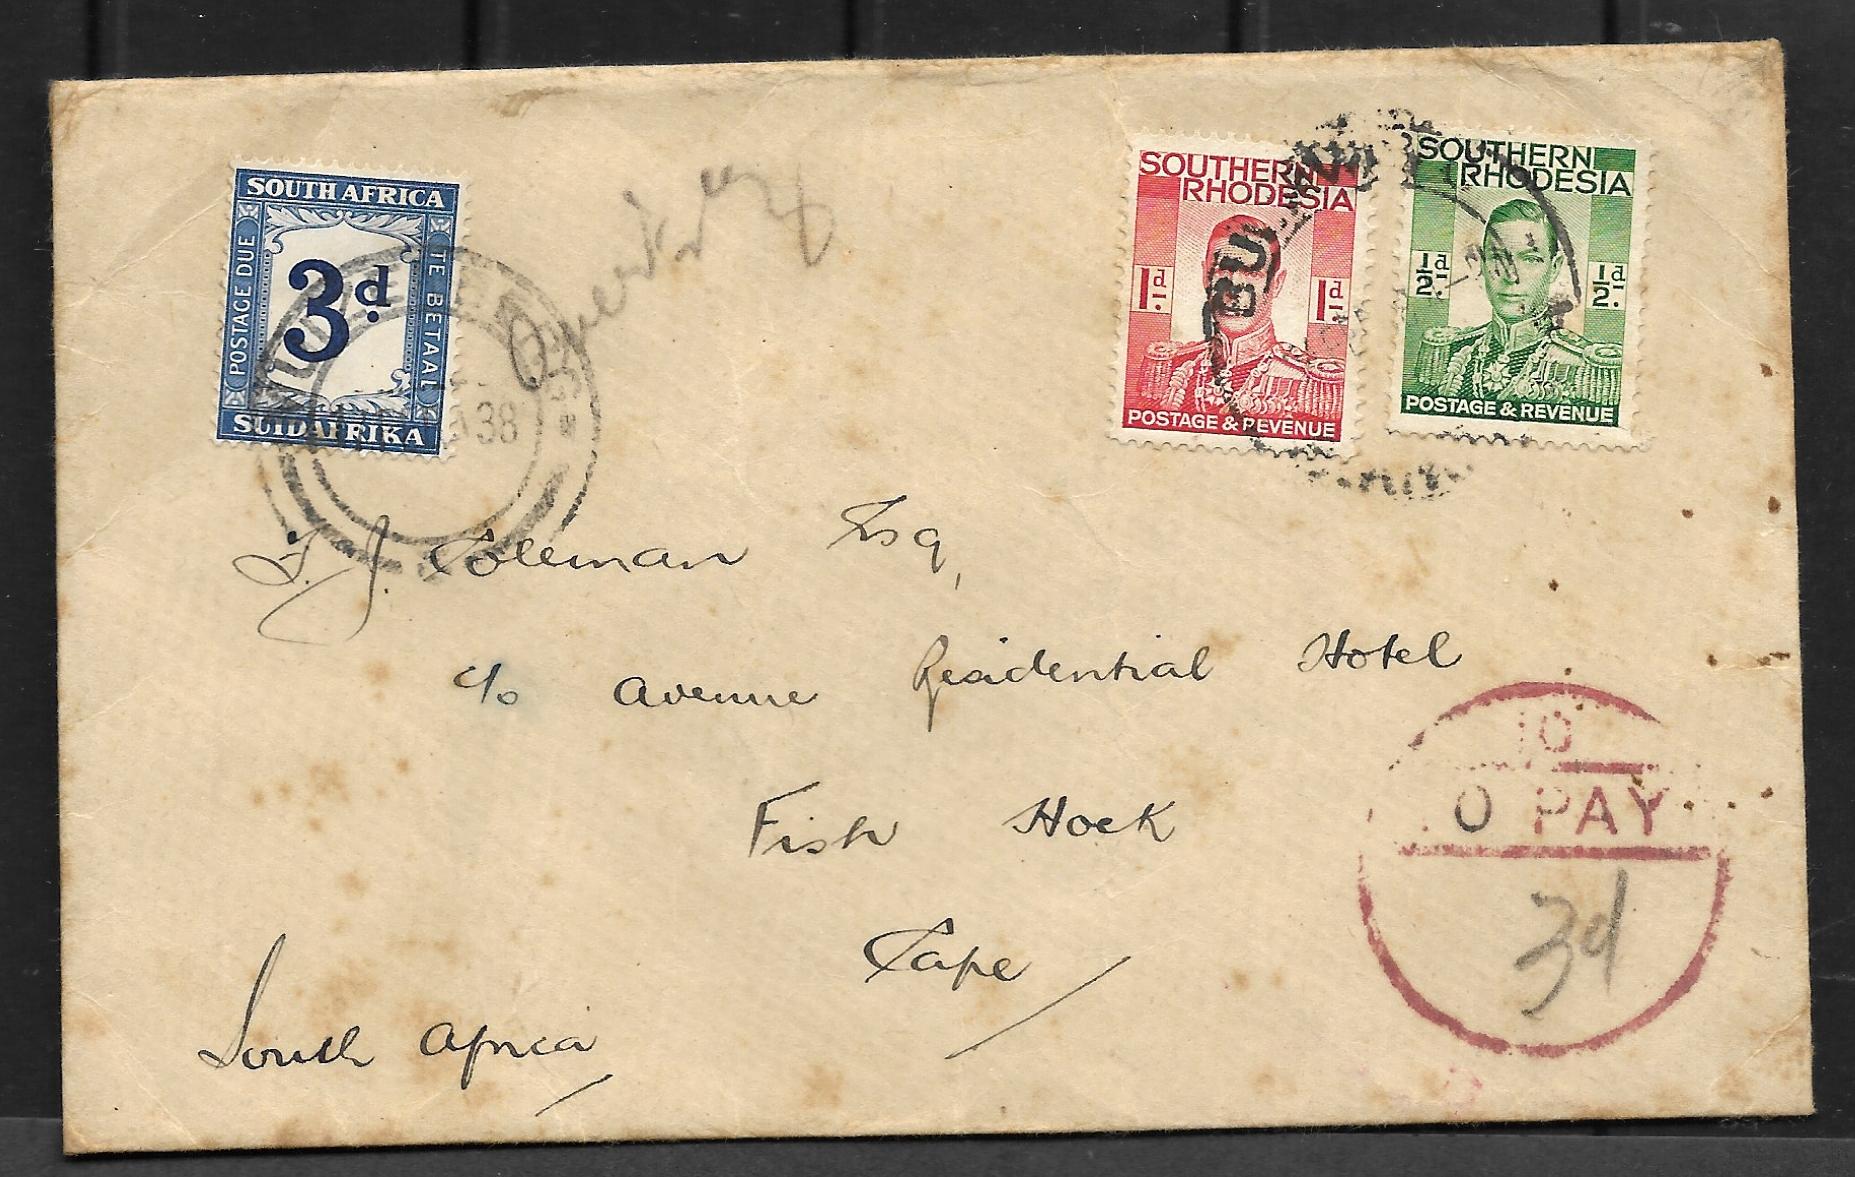 SOUTH AFRICA
POSTAGE DUE
3d.
TE BETAAL
SUIDAFRIKA
38
SOUTHERN
RHODESIA
1d. 1d.
POSTAGE & REVENUE
SOUTHERN
RHODESIA
½d. ½d.
POSTAGE & REVENUE
BU
J. Coleman Esq,
c/o Avenue Residential Hotel
Fish Hoek
Cape
South Africa
10
O PAY
3d